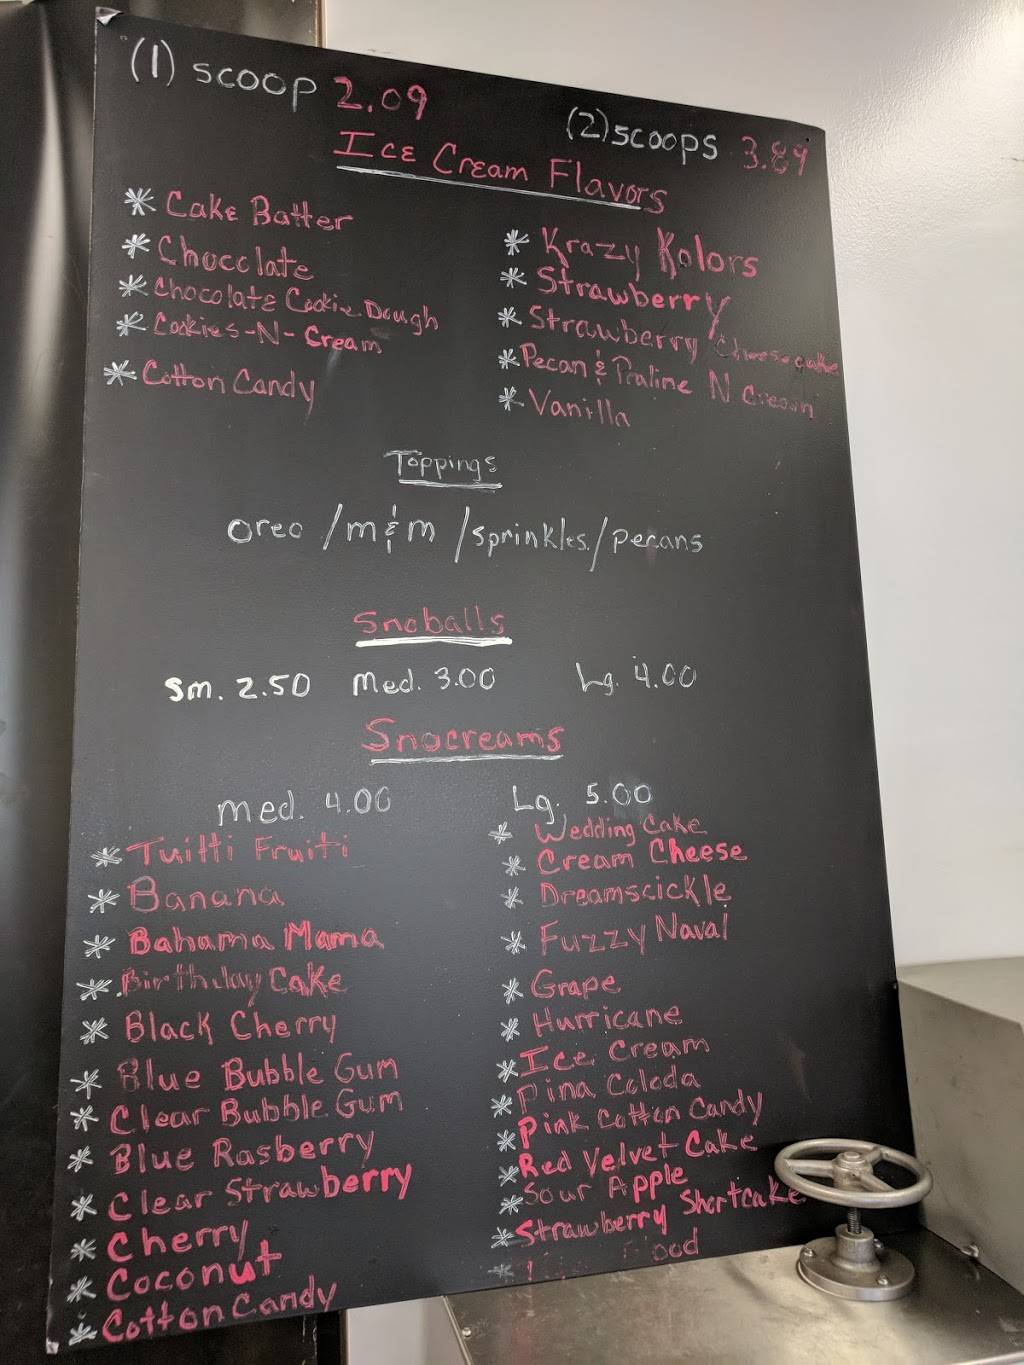 (1) scoop 2.09
(2) scoops 3.89
Ice Cream Flavors
* Cake Batter
* Chocclate
* Chocolate Cookie Dough
* Cookies-N-Cream
* Cotton Candy
* Krazy Kolors
* Strawberry
* Strawberry Cheesecake
* Pecan & Praline N Cream
* Vanilla
Toppings
oreo / m&m / sprinkles / pecans
Snoballs
Sm. 2.50 Med. 3.00 Lg. 4.00
Snocreams
med. 4.00 Lg. 5.00
* Tuitti Fruiti
* Banana
* Bahama Mama
* Birthday Cake
* Black Cherry
* Blue Bubble Gum
* Clear Bubble Gum
* Blue Rasberry
* Clear Strawberry
* Cherry
* Coconut
* Cotton Candy
* Wedding Cake
* Cream Cheese
* Dreamscickle
* Fuzzy Naval
* Grape
* Hurricane
* Ice Cream
* Pina Coloda
* Pink Cotton Candy
* Red Velvet Cake
* Sour Apple
* Strawberry Shortcake
*